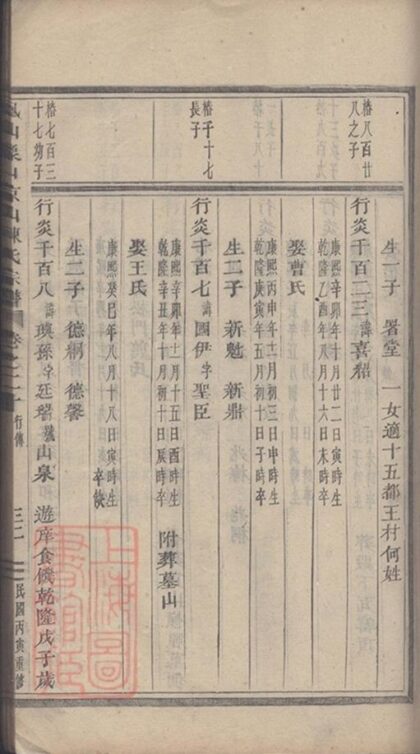 生一子 署堂 一女適十五都王村何姓
椿八百廿
八之子
行炎千百二三 諱喜
康熙辛卯年十月廿二日寅時生
乾隆乙酉年八月十六日未時卒
娶曹氏
康熙丙申年二月初三日申時生
乾隆庚午年五月初十日子時卒
生二子 新魁 新鼎
椿千十七
長子
行炎千百七 諱國伊 字聖臣
康熙辛卯年十二月十五日酉時生
乾隆辛丑年十月初十日辰時卒 附葬墓山
娶王氏
康熙癸巳年八月十八日寅時生
卒缺
生二子 德炯 德馨
椿七百三
十七幼子
行炎千百八 諱瑛孫 字廷 號山泉 遊庠食餼乾隆戊子歲
山 山 山陳氏宗譜 卷之二十 行傳 三二 民國丙寅重修
上海圖書館藏